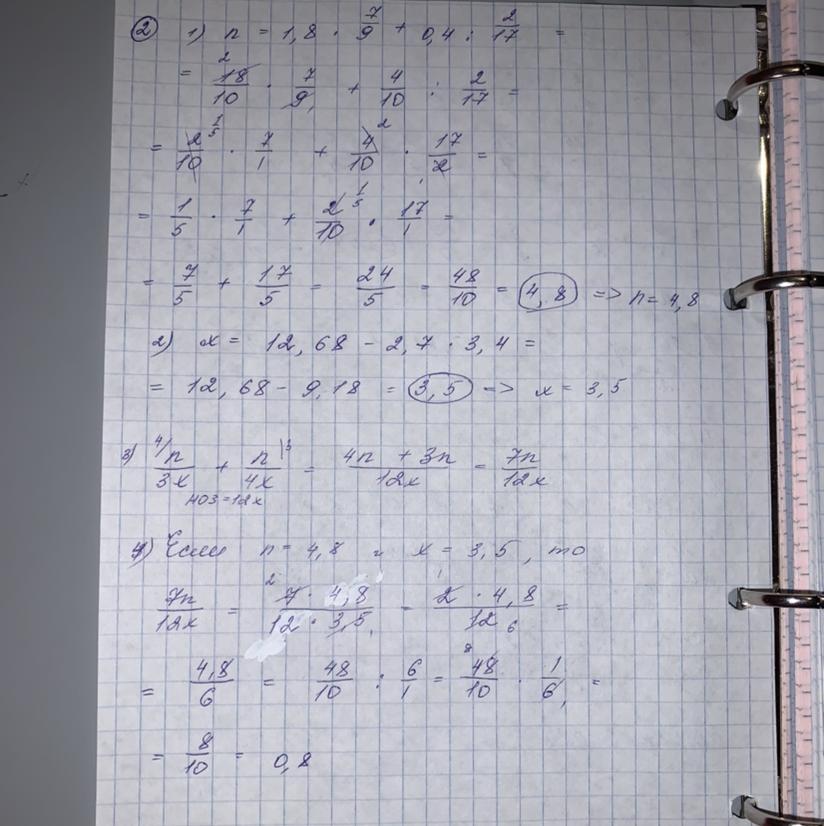 ② 1) n = 1,8 · 7/9 + 0,4 : 2/17 =
= 18/10 · 7/9 + 4/10 : 2/17 =
= 2/10 · 7/1 + 4/10 · 17/2 =
= 1/5 · 7/1 + 2/10 · 17/1 =
= 7/5 + 17/5 = 24/5 = 48/10 = 4,8 => n = 4,8
2) x = 12,68 - 2,7 · 3,4 =
= 12,68 - 9,18 = 3,5 => x = 3,5
3) 4/ n/3x + n/4x \3 = 4n + 3n/12x = 7n/12x
НОЗ = 12x
4) Если n = 4,8 и x = 3,5, то
7n/12x = 7 · 4,8/12 · 3,5 = 2 · 4,8/12 =
= 4,8/6 = 48/10 : 6/1 = 48/10 · 1/6 =
= 8/10 = 0,8